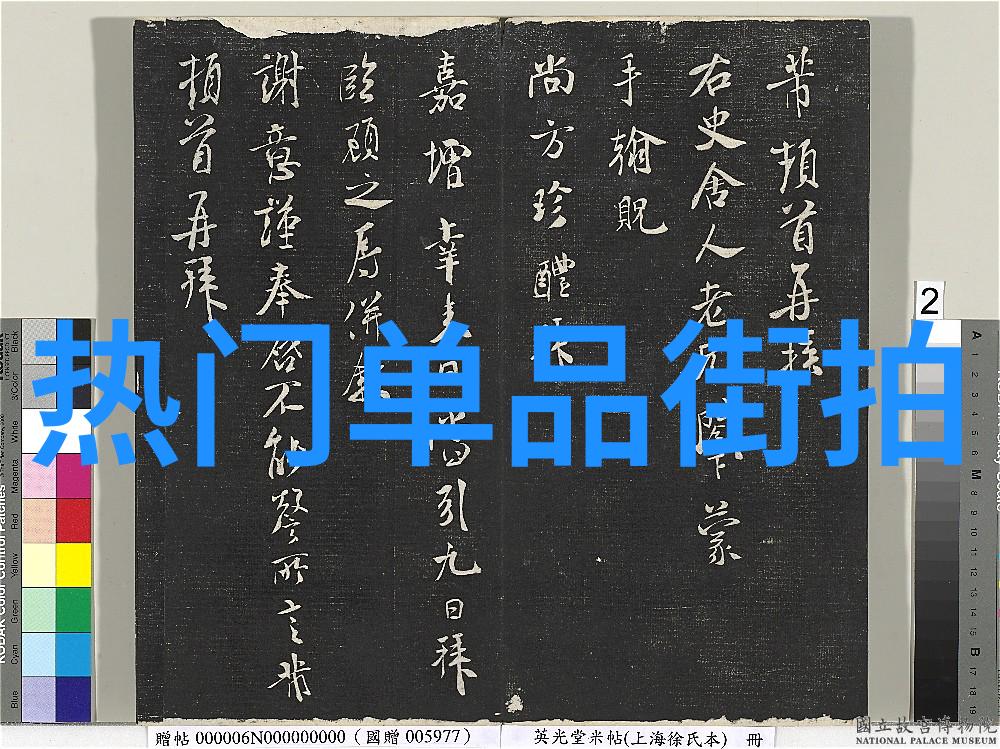 芾頓首再拜
右史舍人老兄閣下蒙
手翰貺
尚方珍醴
嘉增幸
引九日拜
臨顧之辱併
謝意謹奉啓不能謦所言芾
頓首再拜
热门单品街拍
2
A
1
2
3
4
5
6
M
8
9
10
11
12
13
14
15
B
17
18
19
3/Color
Black
White
Magenta
Red
Yellow
Green
Cyan
Blue
贈帖 000006N000000000 (國贈 005977)
英光堂米帖(上海徐氏本) 冊
國立故宮博物院
NATIONAL PALACE MUSEUM